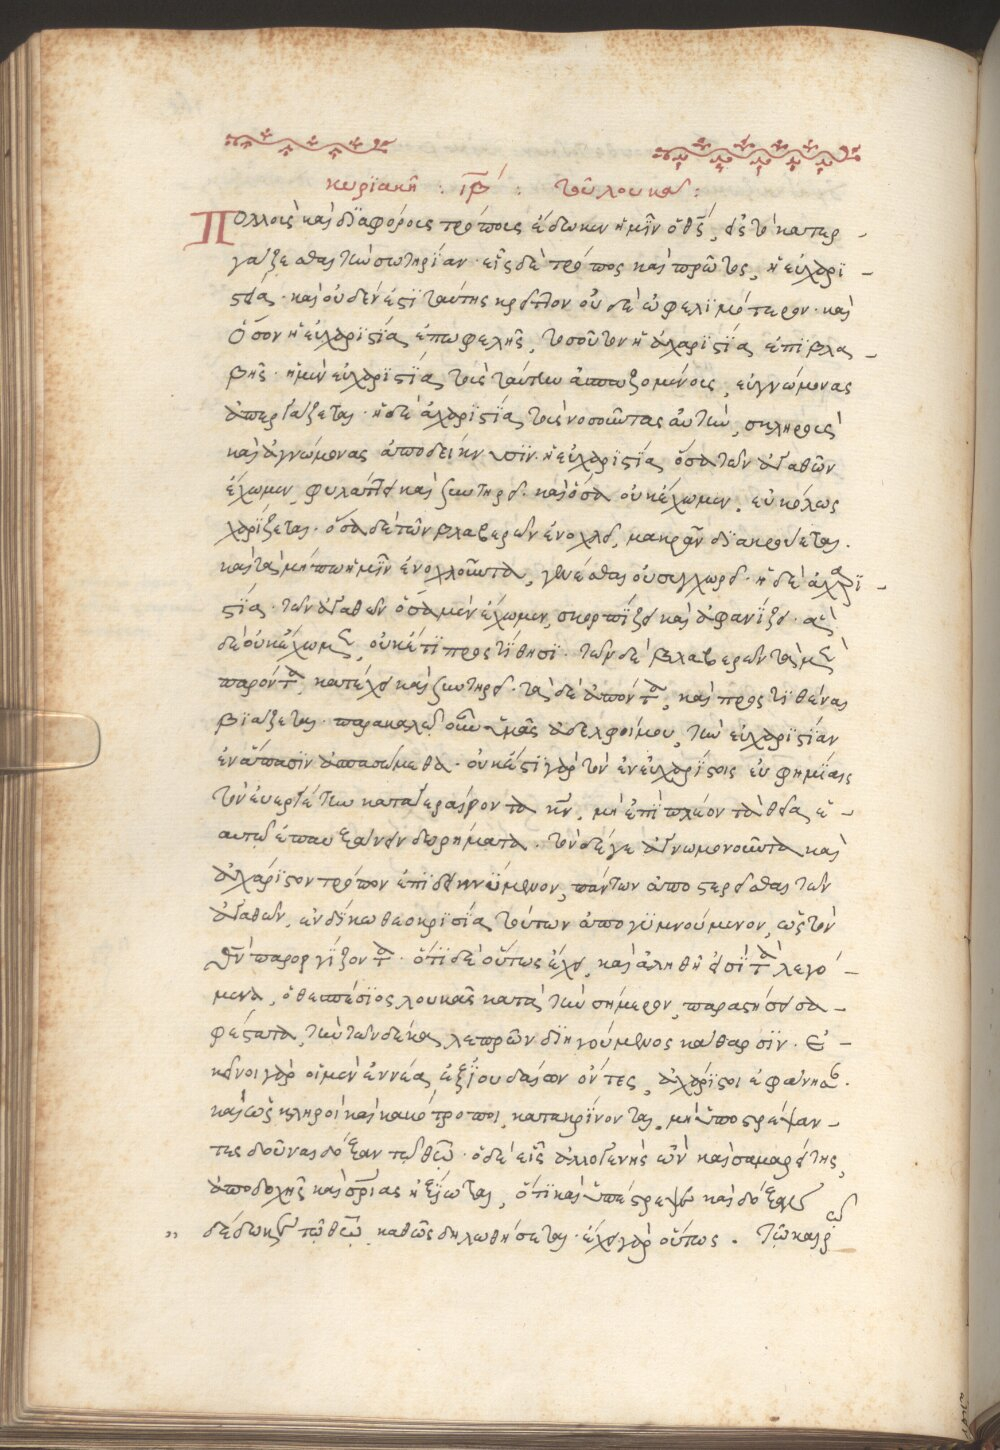 κυρϊακῆ : ιβ΄ : τοῦ λουκᾶ :
Πολλοῖς καὶ δϊαφόροις τρόποις ἔδωκεν ἡμῖν ὁ θς, εἰς τὸ κατερ -
γάζεσθαι τὴν σωτηρίαν · εἷς δὲ τρόπος καὶ πρῶτος, ἡ εὐχαρϊ -
στία · καὶ οὐδὲν ἐστϊ ταύτης κρεῖττον οὐδὲ ὠφελϊμότερον · καὶ
ὅσον ἡ εὐχαρϊστία ἐπωφελὴς, τοσοῦτον ἡ ἀχαρϊστία ἐπϊβλα -
βὴς · ἡ μὲν εὐχαρϊστία τοὺς ταύτην ἀσπαζομένους, εὐγνώμονας
ἀπεργάζεται · ἡ δὲ ἀχαρϊστία τοὺς νοσοῦντας αὐτὴν, σκληροὺς
καὶ ἀγνώμονας ἀποδείκνυσϊν · ἡ εὐχαρϊστία ὅσα τῶν ἀγαθῶν
ἔχωμεν, φυλάττει καὶ συντηρεῖ · καὶ ὅσα οὐκ ἔχωμεν, εὐκόλως
χαρϊζεται · ὅσα δὲ τῶν βλαβερῶν ἐνοχλεῖ, μακρὰν δϊακρούεται ·
καὶ τὰ μήπω ἡμῖν ἐνοχλοῦντα, γενέσθαι οὐ συγχωρεῖ · ἡ δὲ ἀχαρϊ -
στία · τῶν ἀγαθῶν ὅσα μὲν ἔχωμεν, σκορπϊζει καὶ ἀφανϊζει · ἃ
δὲ οὐκ ἔχωμεν, οὐκέτϊ προστϊθησϊ · τῶν δὲ βλαβερῶν τὰ μὲν
παρόντα, κατέχει καὶ συντηρεῖ · τὰ δὲ ἀπόντα, καὶ προστϊθέναι
βϊάζεται · παρακαλῶ οὖν ὑμᾶς ἀδελφοί μου, τὴν εὐχαρϊστϊαν
ἐν ἅπασϊν ἀσπασώμεθα · οὐκ ἔστϊ γὰρ τὸν ἐν εὐχαρϊστοις εὐφημϊαις
τὸν εὐεργέτην καταγεραίροντα κν, μὴ ἐπϊπλέον τὰ θεῖα ἑ -
αυτῷ ἐπαυξαίνειν δωρήματα · τὸν δέ γε ἀγνωμονοῦντα καὶ
ἀχάρϊστον τρόπον ἐπϊδεικνύμενον, πάντων ἀποστερεῖσθαι τῶν
ἀγαθῶν, ἐνδίκω θεοκρϊσία τούτων ἀπογϋμνούμενον, ὡς τὸν
θν παροργϊζοντα · ὅτϊ δὲ οὕτως ἔχει, καὶ ἀληθῆ εἰσϊ τὰ λεγό -
μενα, ὁ θεσπέσϊος λουκᾶς κατὰ τὴν σήμερον, παραστήσει σα -
φέστατα, τὴν τῶν δέκα λεπρῶν δϊηγούμενος κάθαρσϊν · Ἐ -
κεῖνοι γὰρ οἱ μὲν ἐννέα ἐξ ἰουδαίων ὄντες, ἀχάρϊστοι ἐφάνησαν ·
καὶ ὡς σκληροὶ καὶ κακότροποι κατακρϊνονται, μὴ ὑποστρέψαν -
τες δοῦναι δόξαν τῷ θεῷ · ὁ δὲ εἷς ἀλλογενὴς ὢν καὶ σαμαρείτης,
ἀποδοχῆς καὶ σρίας ἠξϊωται, ὅτϊ καὶ ὑπέστρεψεν καὶ δόξαν
" δέδωκεν τῷ θεῷ, καθὼς δηλωθήσεται · ἔχει γὰρ οὕτως . Τῷ καιρῷ